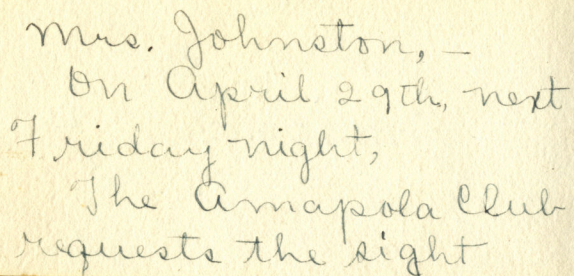 Mrs. Johnston, –
On April 29th, next
Friday night,
The Amapola Club
requests the sight